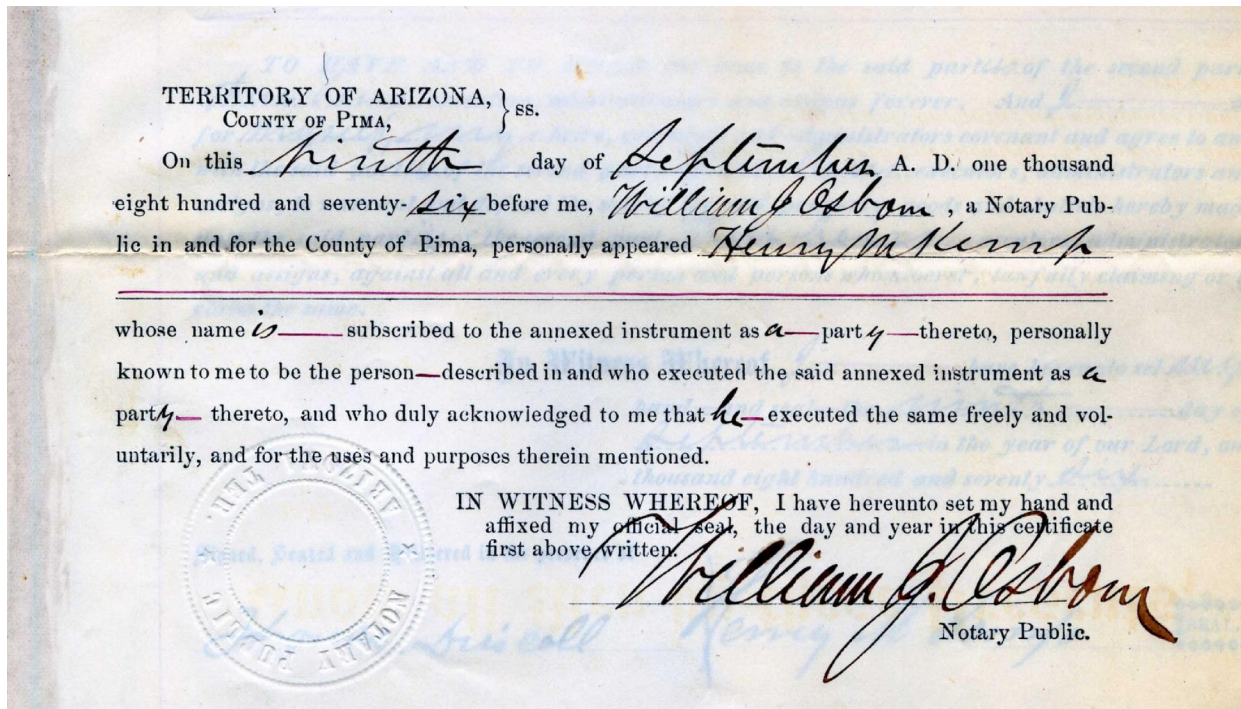 TERRITORY OF ARIZONA, } ss.
COUNTY OF PIMA,
On this ninth day of September A. D. one thousand
eight hundred and seventy-six before me, William J. Osborn, a Notary Pub-
lic in and for the County of Pima, personally appeared Henry M Kemp
whose name is subscribed to the annexed instrument as a party thereto, personally
known to me to be the person described in and who executed the said annexed instrument as a
party thereto, and who duly acknowledged to me that he executed the same freely and vol-
untarily, and for the uses and purposes therein mentioned.
IN WITNESS WHEREOF, I have hereunto set my hand and
affixed my official seal, the day and year in this certificate
first above written.
William J. Osborn
Notary Public.
NOTARY PUBLIC
ARIZONA TER